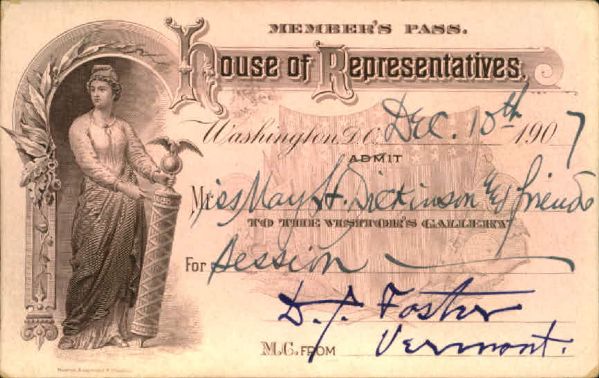 MEMBER'S PASS.
House of Representatives.
Washington, D.C. Dec. 10th 1907
ADMIT
Miss May H. Dickinson & friends
TO THE VISITOR'S GALLERY
For Session
D. J. Foster
M.C. FROM Vermont.